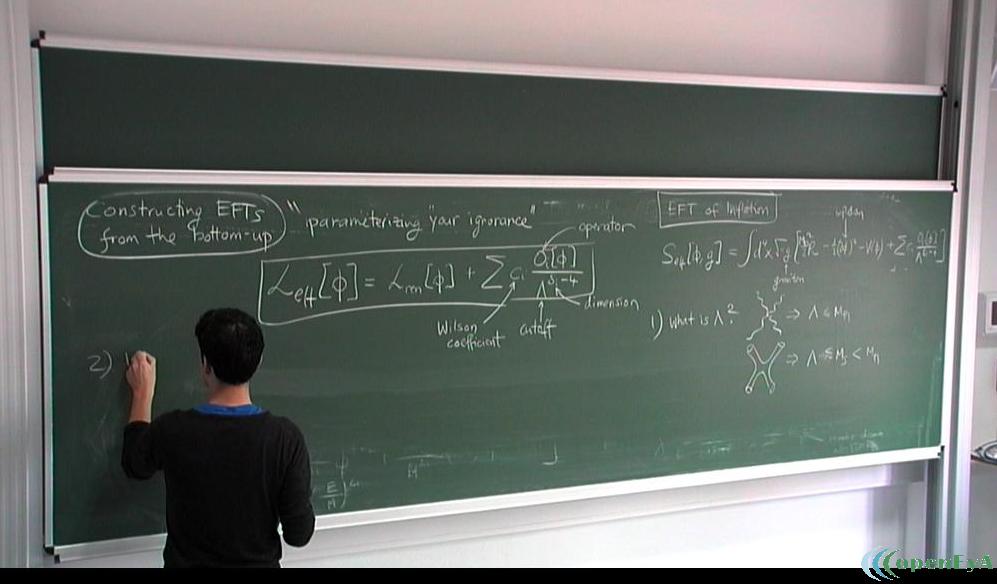 Constructing EFTs
from the bottom-up
"parameterizing "your ignorance"
L_eff[ϕ] = L_m[ϕ] + Σ c_i O_i[ϕ] / Λ^{δ_i-4}
operator
dimension
Wilson
coefficient
cutoff
2)
EFT of Inflation
S_eff[ϕ,g] = ∫d⁴x√-g
graviton
1) What is Λ?
⇒ Λ ≤ M_pl
⇒ Λ ≤ M_s < M_pl
E
M
openEyA